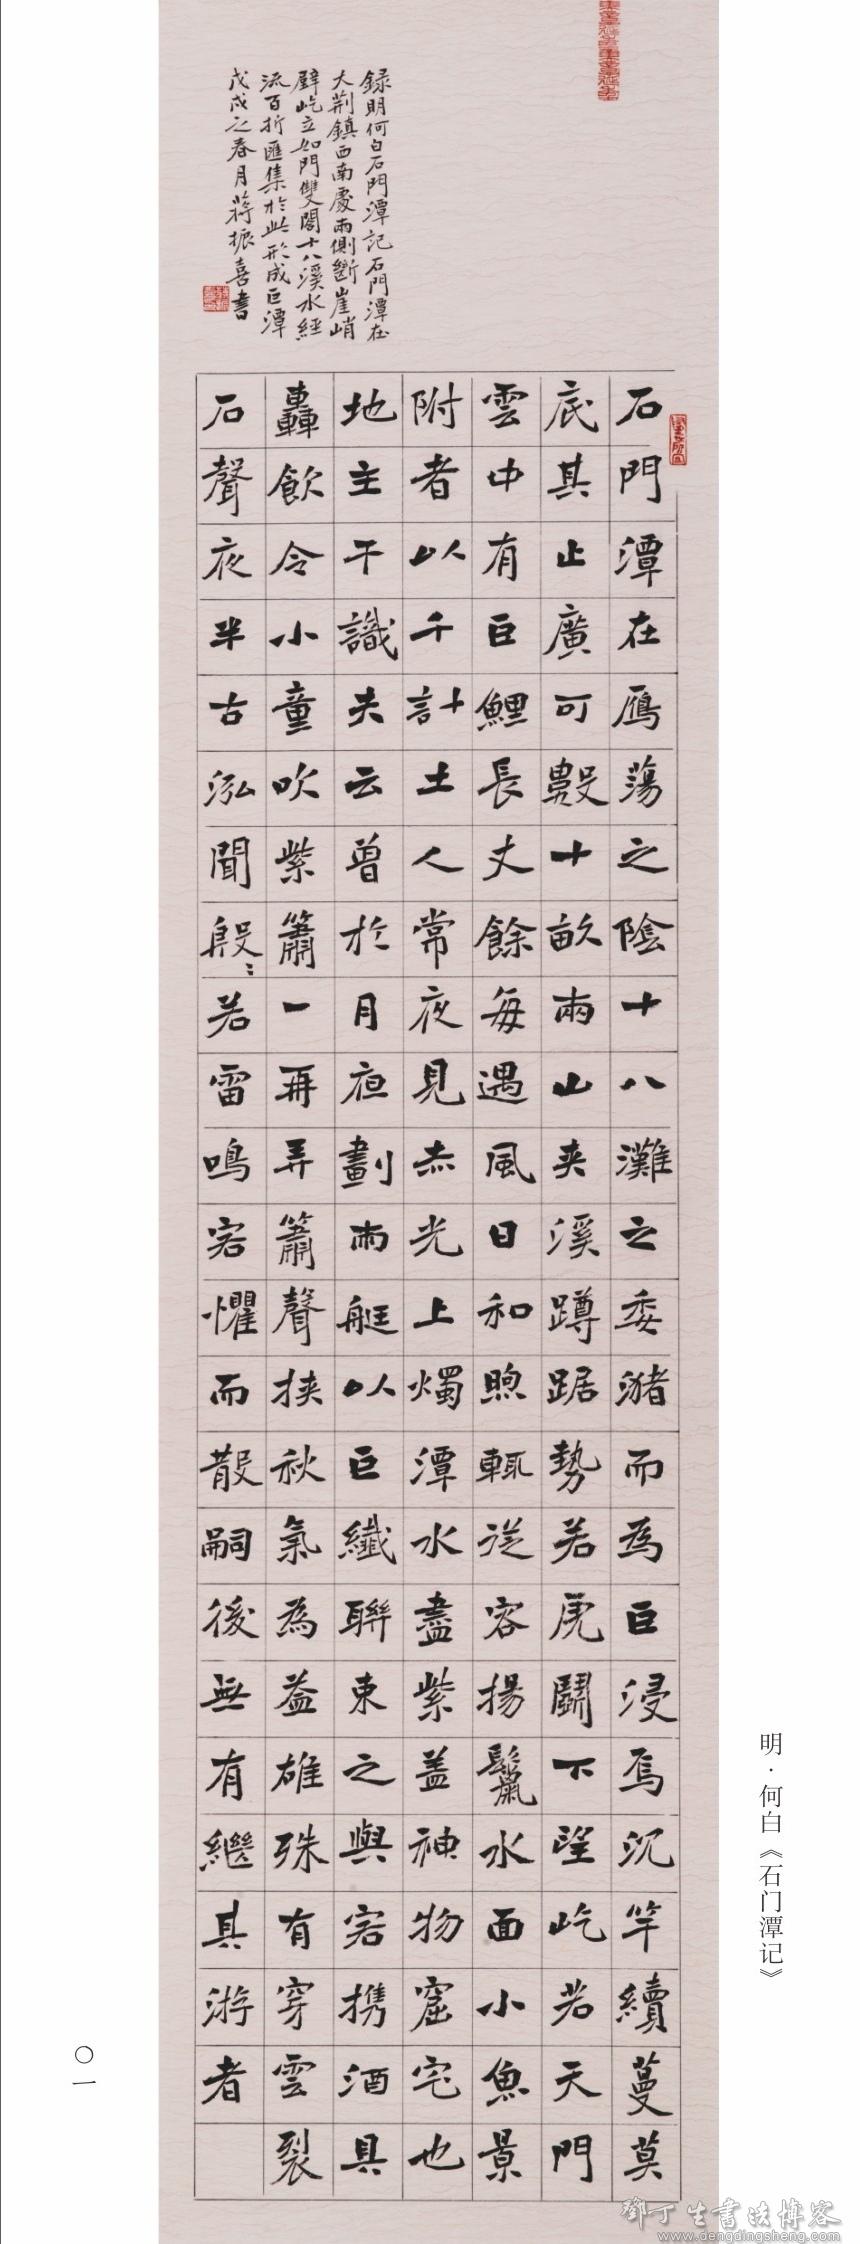 石門潭在鴈蕩之陰十八灘之委潴而為巨浸焉沉竿續蔓莫
底其止廣可數十畝兩山夾溪蹲踞勢若虎鬬下望屹若天門
雲中有巨鯉長丈餘每遇風日和煦輒從容揚鬣水面小魚景
附者以千計土人常夜見赤光上燭潭水盡紫蓋神物窟宅也
地主干識夫云曾於月夜劃兩艇以巨纖聯束之與客携酒具
轟飲令小童吹紫簫一再弄簫聲挾秋氣為益雄殊有穿雲裂
石聲夜半古泓聞殷〻若雷鳴客懼而散嗣後無有繼其游者
録明何白石門潭記石門潭在
大荆鎮西南處兩側斷崖峭
壁屹立如門雙闔十八溪水經
流百折匯集於此形成巨潭
戊戌之春月蔣振喜書
明·何白《石门潭记》
〇一
鄧丁生書法博客
www.dengdingsheng.com